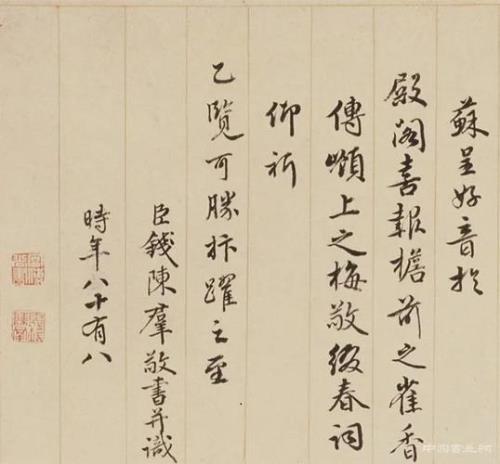 蘇呈好音於
殿閣喜報檐前之雀香
傳嶺上之梅敬綴春詞
仰祈
乙覽可勝抃躍之至
臣錢陳羣敬書并識
時年八十有八